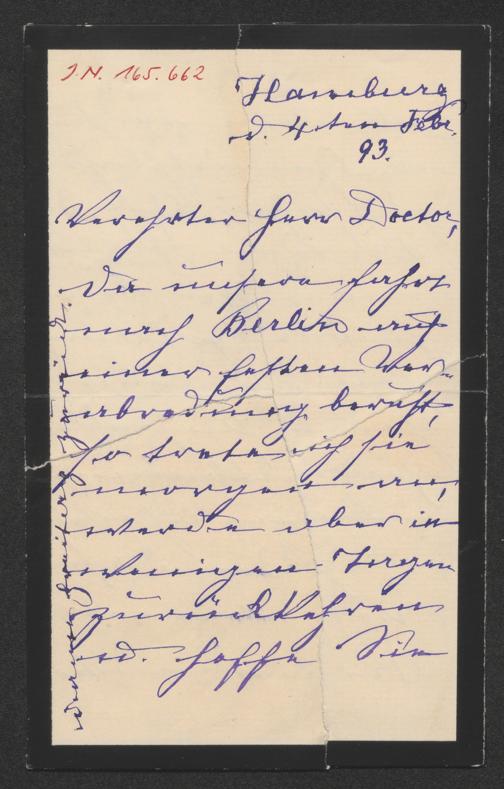 J.N. 165.662
Hamburg
d. 4ten Febr.
93.
Verehrter Herr Doctor,
Da unsere Fahrt
nach Berlin auf
einer festen Ver-
abredung beruht,
so trete ich sie
morgen an,
werde aber in
wenigen Tagen
zurückkehren
u. hoffe Sie
zurück.